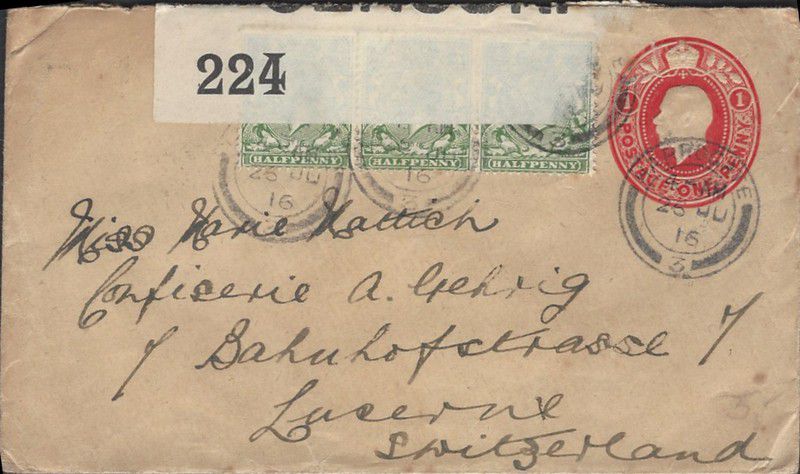 224
HALFPENNY HALFPENNY HALFPENNY
1 POSTAGE ONE PENNY 1
26 JU
16
16
3
3
26 JL
16
3
Miss Marie Mattich
Conficerie A. Gehrig
7 Bahnhofstrasse 7
Lucerne
Switzerland